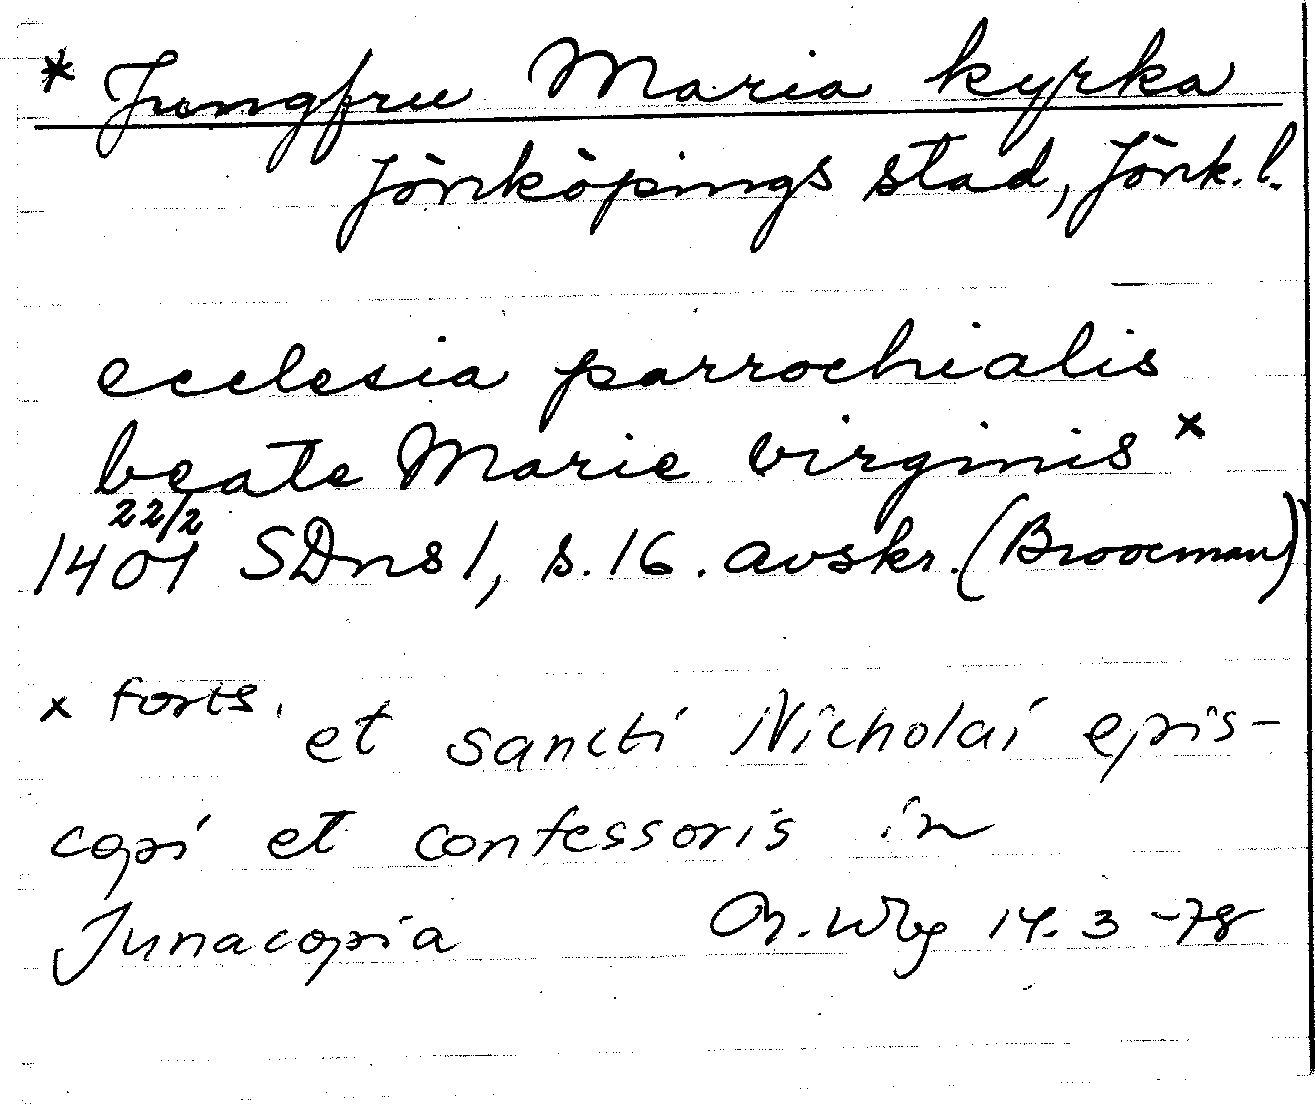 * Jungfru Maria kyrka
Jönköpings stad, Jönk. l.
ecclesia parrochialis
beate Marie virginis x
22/2
1401 SDns 1, s. 16. avskr. (Broocman)
x forts. et sancti Nicholai epis-
copi et confessoris in
Junacopia 14.3 -78